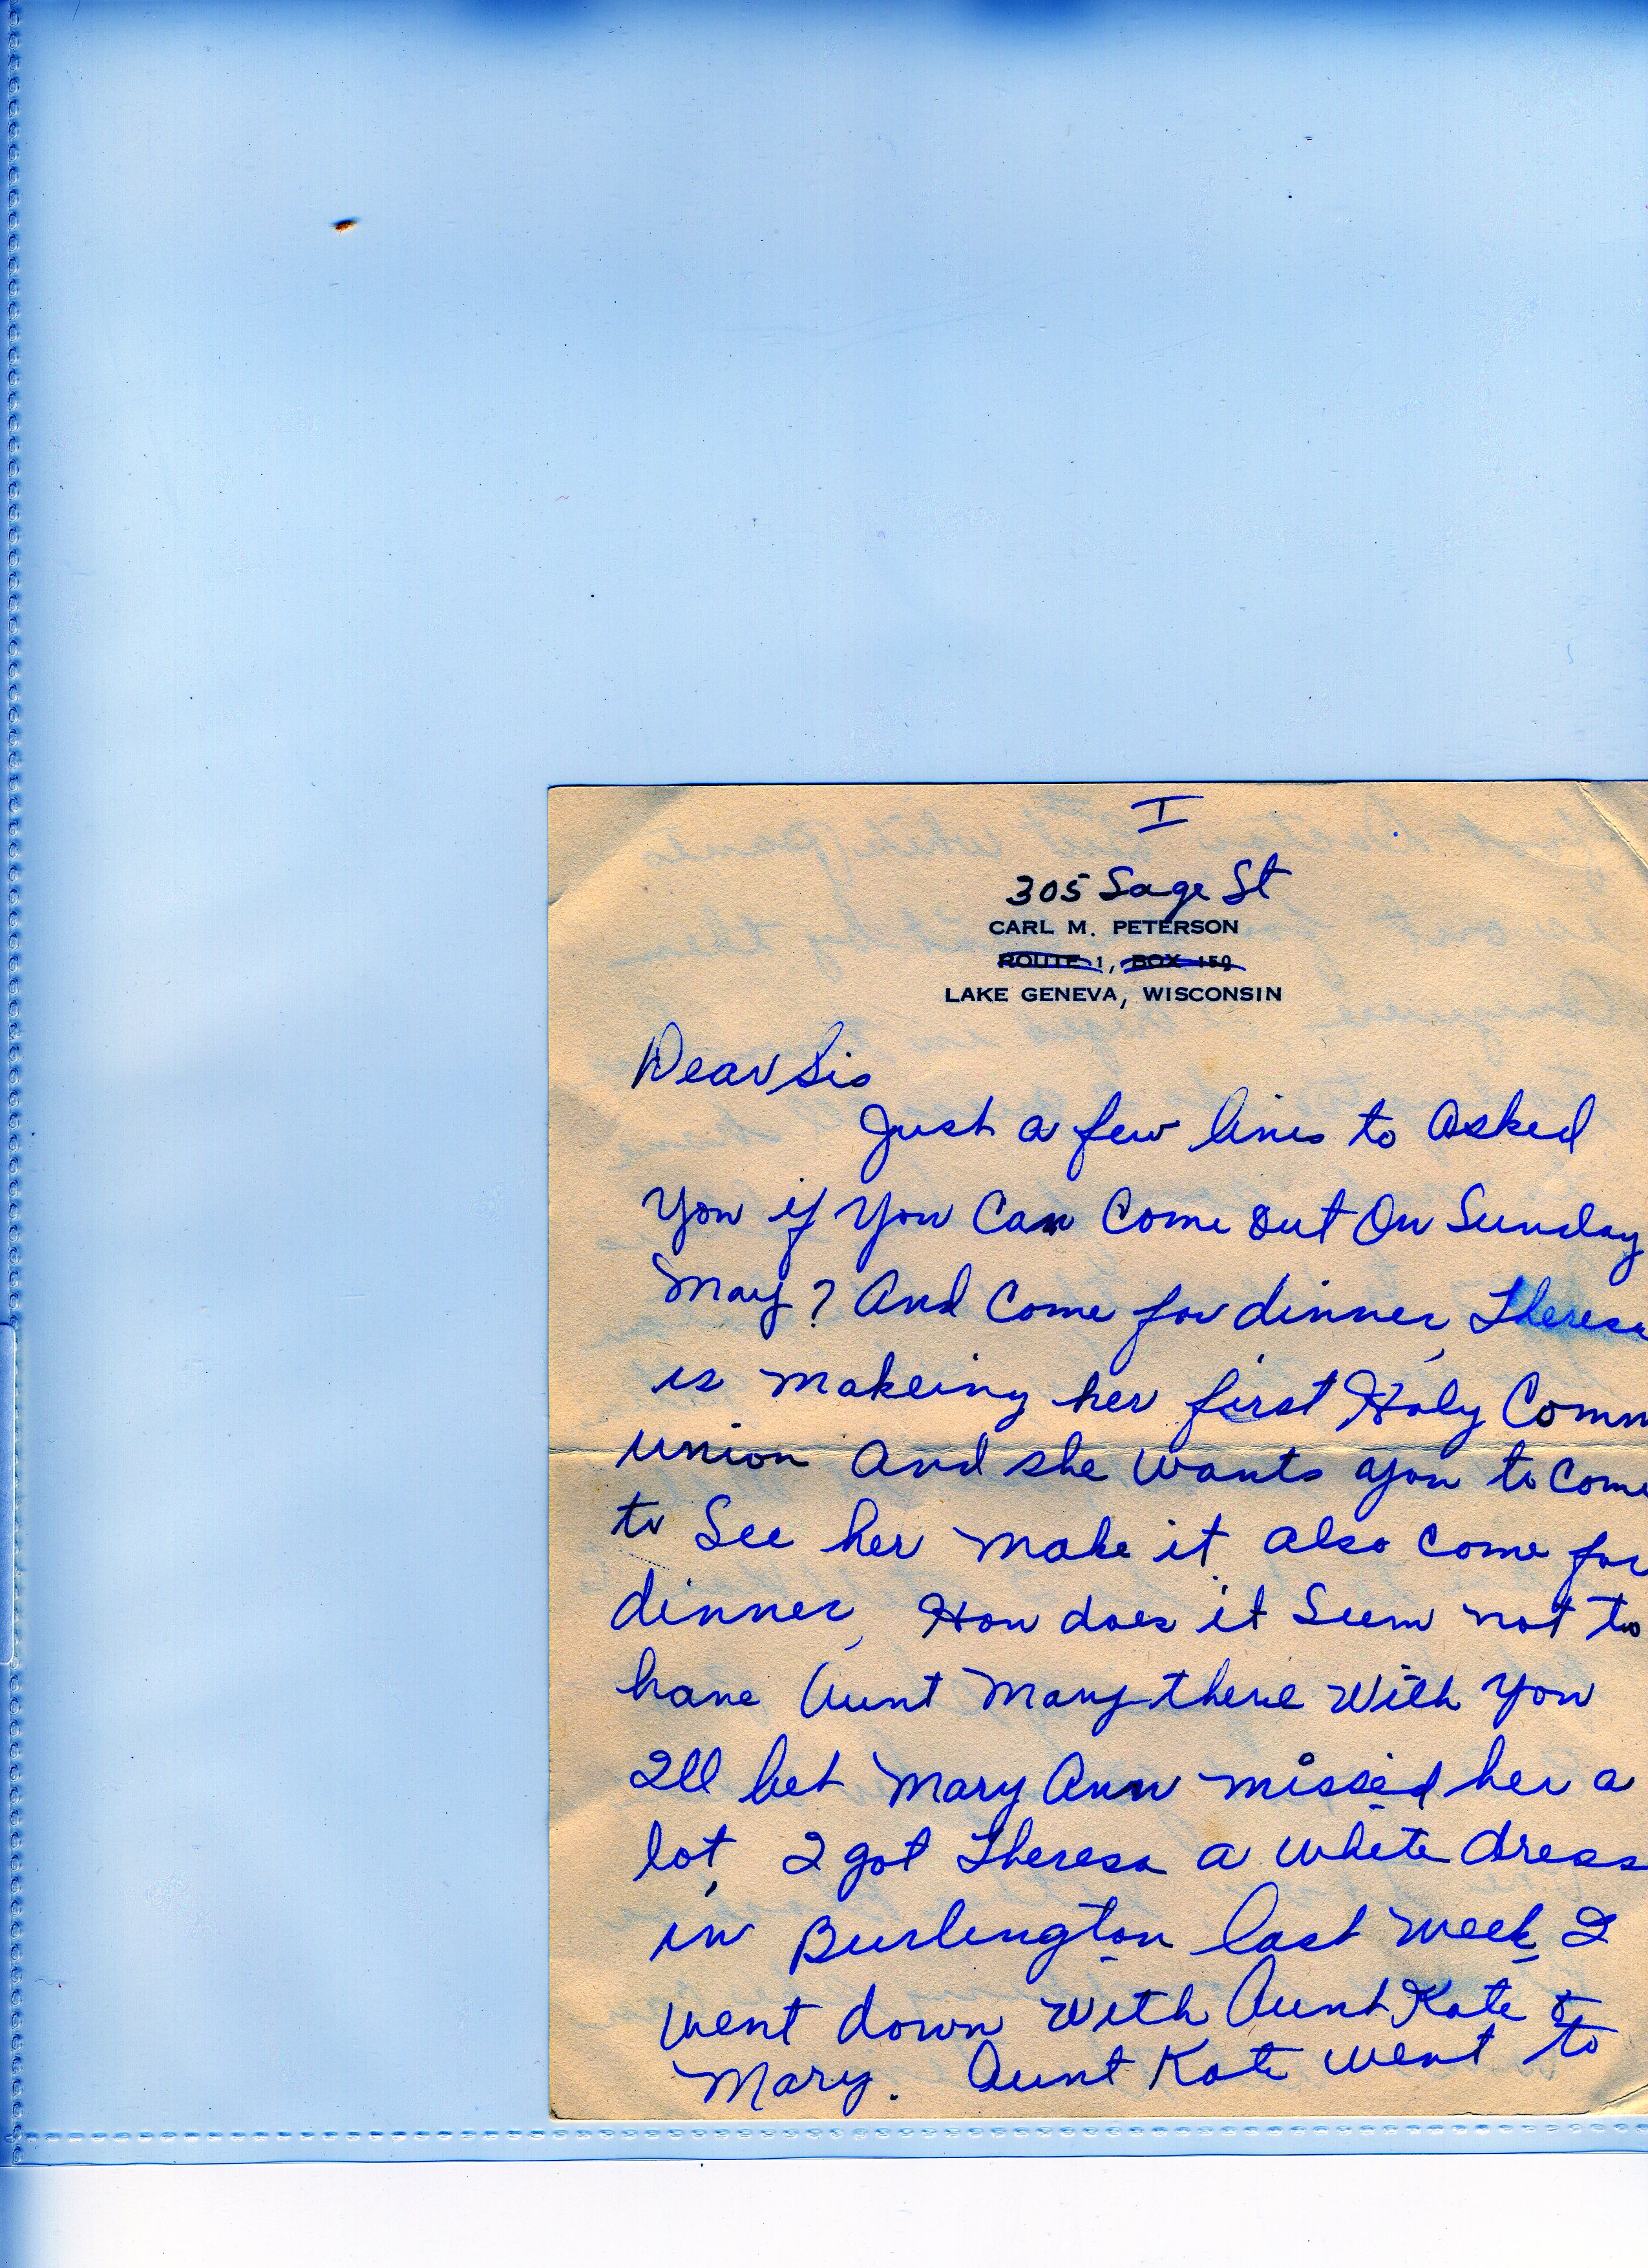 I
305 Sage St
CARL M. PETERSON
ROUTE 1, BOX 159
LAKE GENEVA, WISCONSIN
Dear Sis
Just a few lines to asked
you if you can come out on Sunday
May? And come for dinner, Theresa
is makeing her first Holy Comm
union and she wants you to come
to see her make it also come for
dinner, How does it seem not to
have Aunt Mary there with you
I'll bet Mary Ann missed her a
lot, I got Theresa a white dress
in Burlington last week I
went down with Aunt Kate &
Mary. Aunt Kate went to